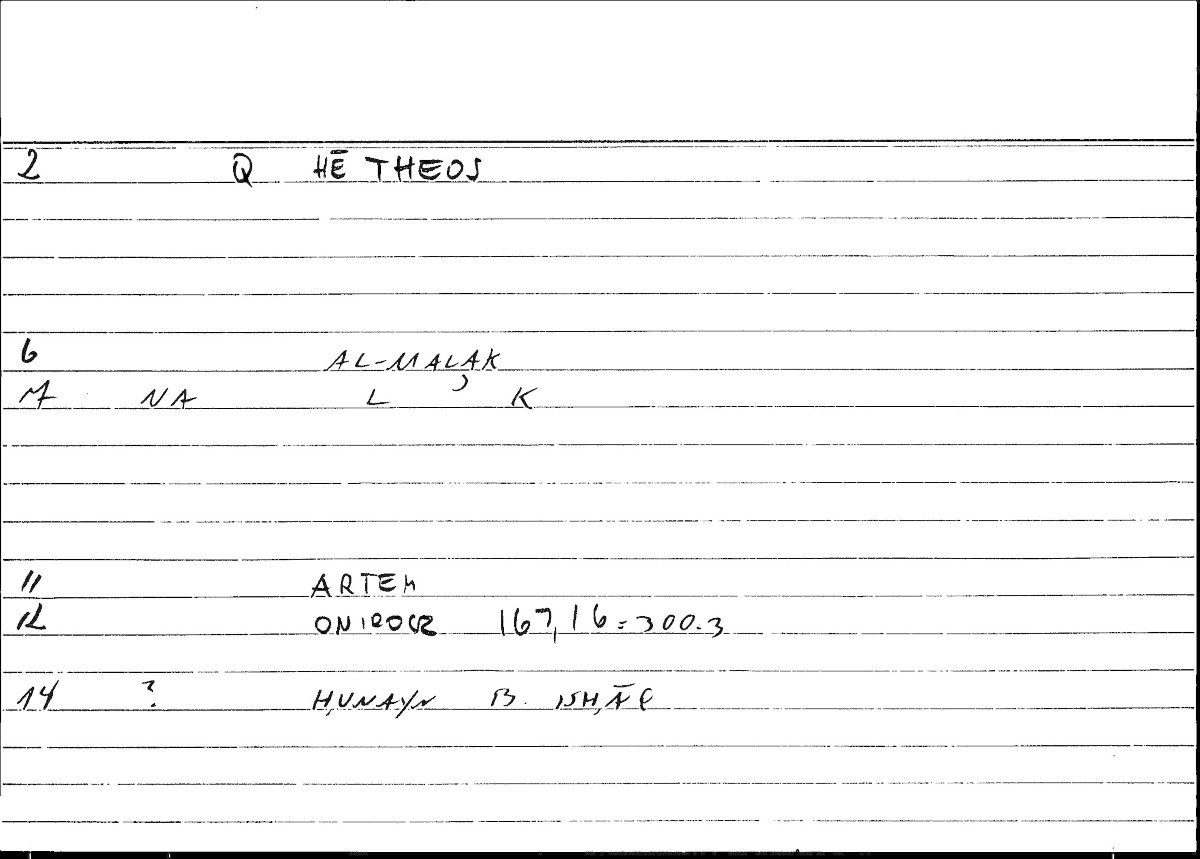 2 Q HĒ THEOS
6 AL-MALAK
M NA L ʾ K
11 ARTEM
12 ONIROCR 167,16=300.3
14 ? ḤUNAYN B. ISḤĀQ